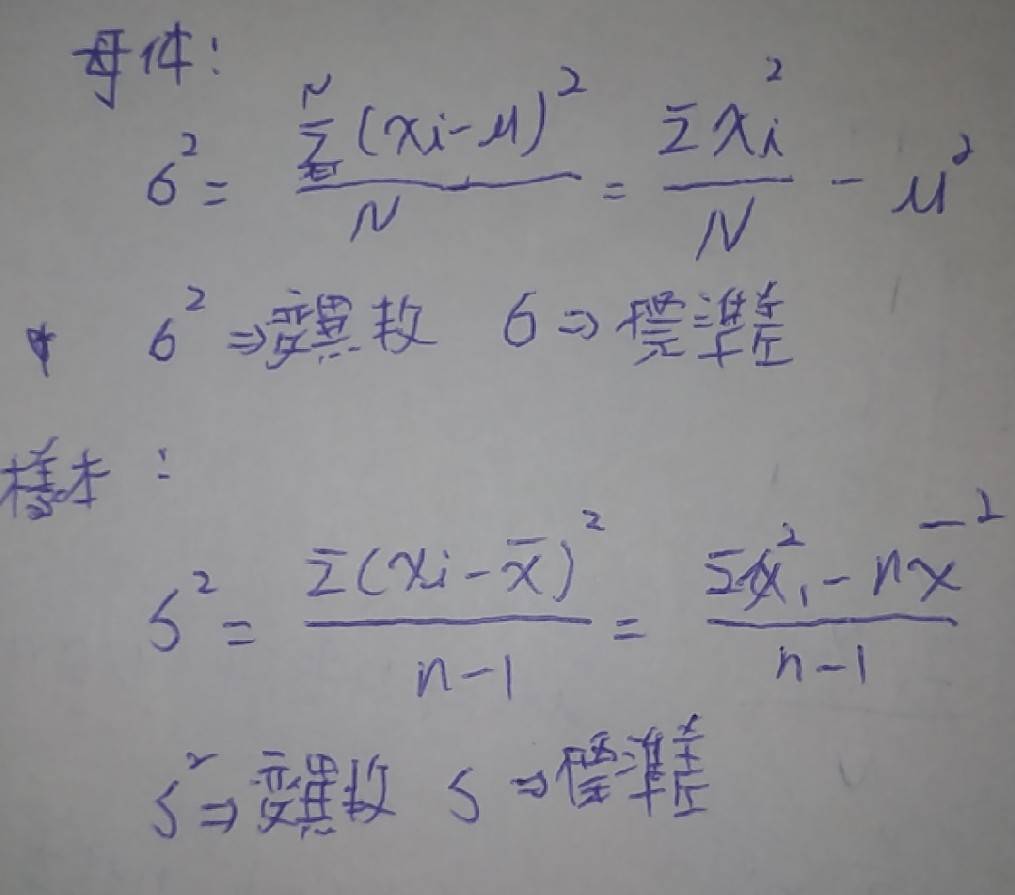 母体:
σ² = Σ(xi-μ)² / N = Σxi² / N - μ²
σ² ⇒ 變異数 σ ⇒ 標準差
樣本:
S² = Σ(xi-x̄)² / n-1 = Σxi² - nx̄² / n-1
S² ⇒ 變異数 S ⇒ 標準差